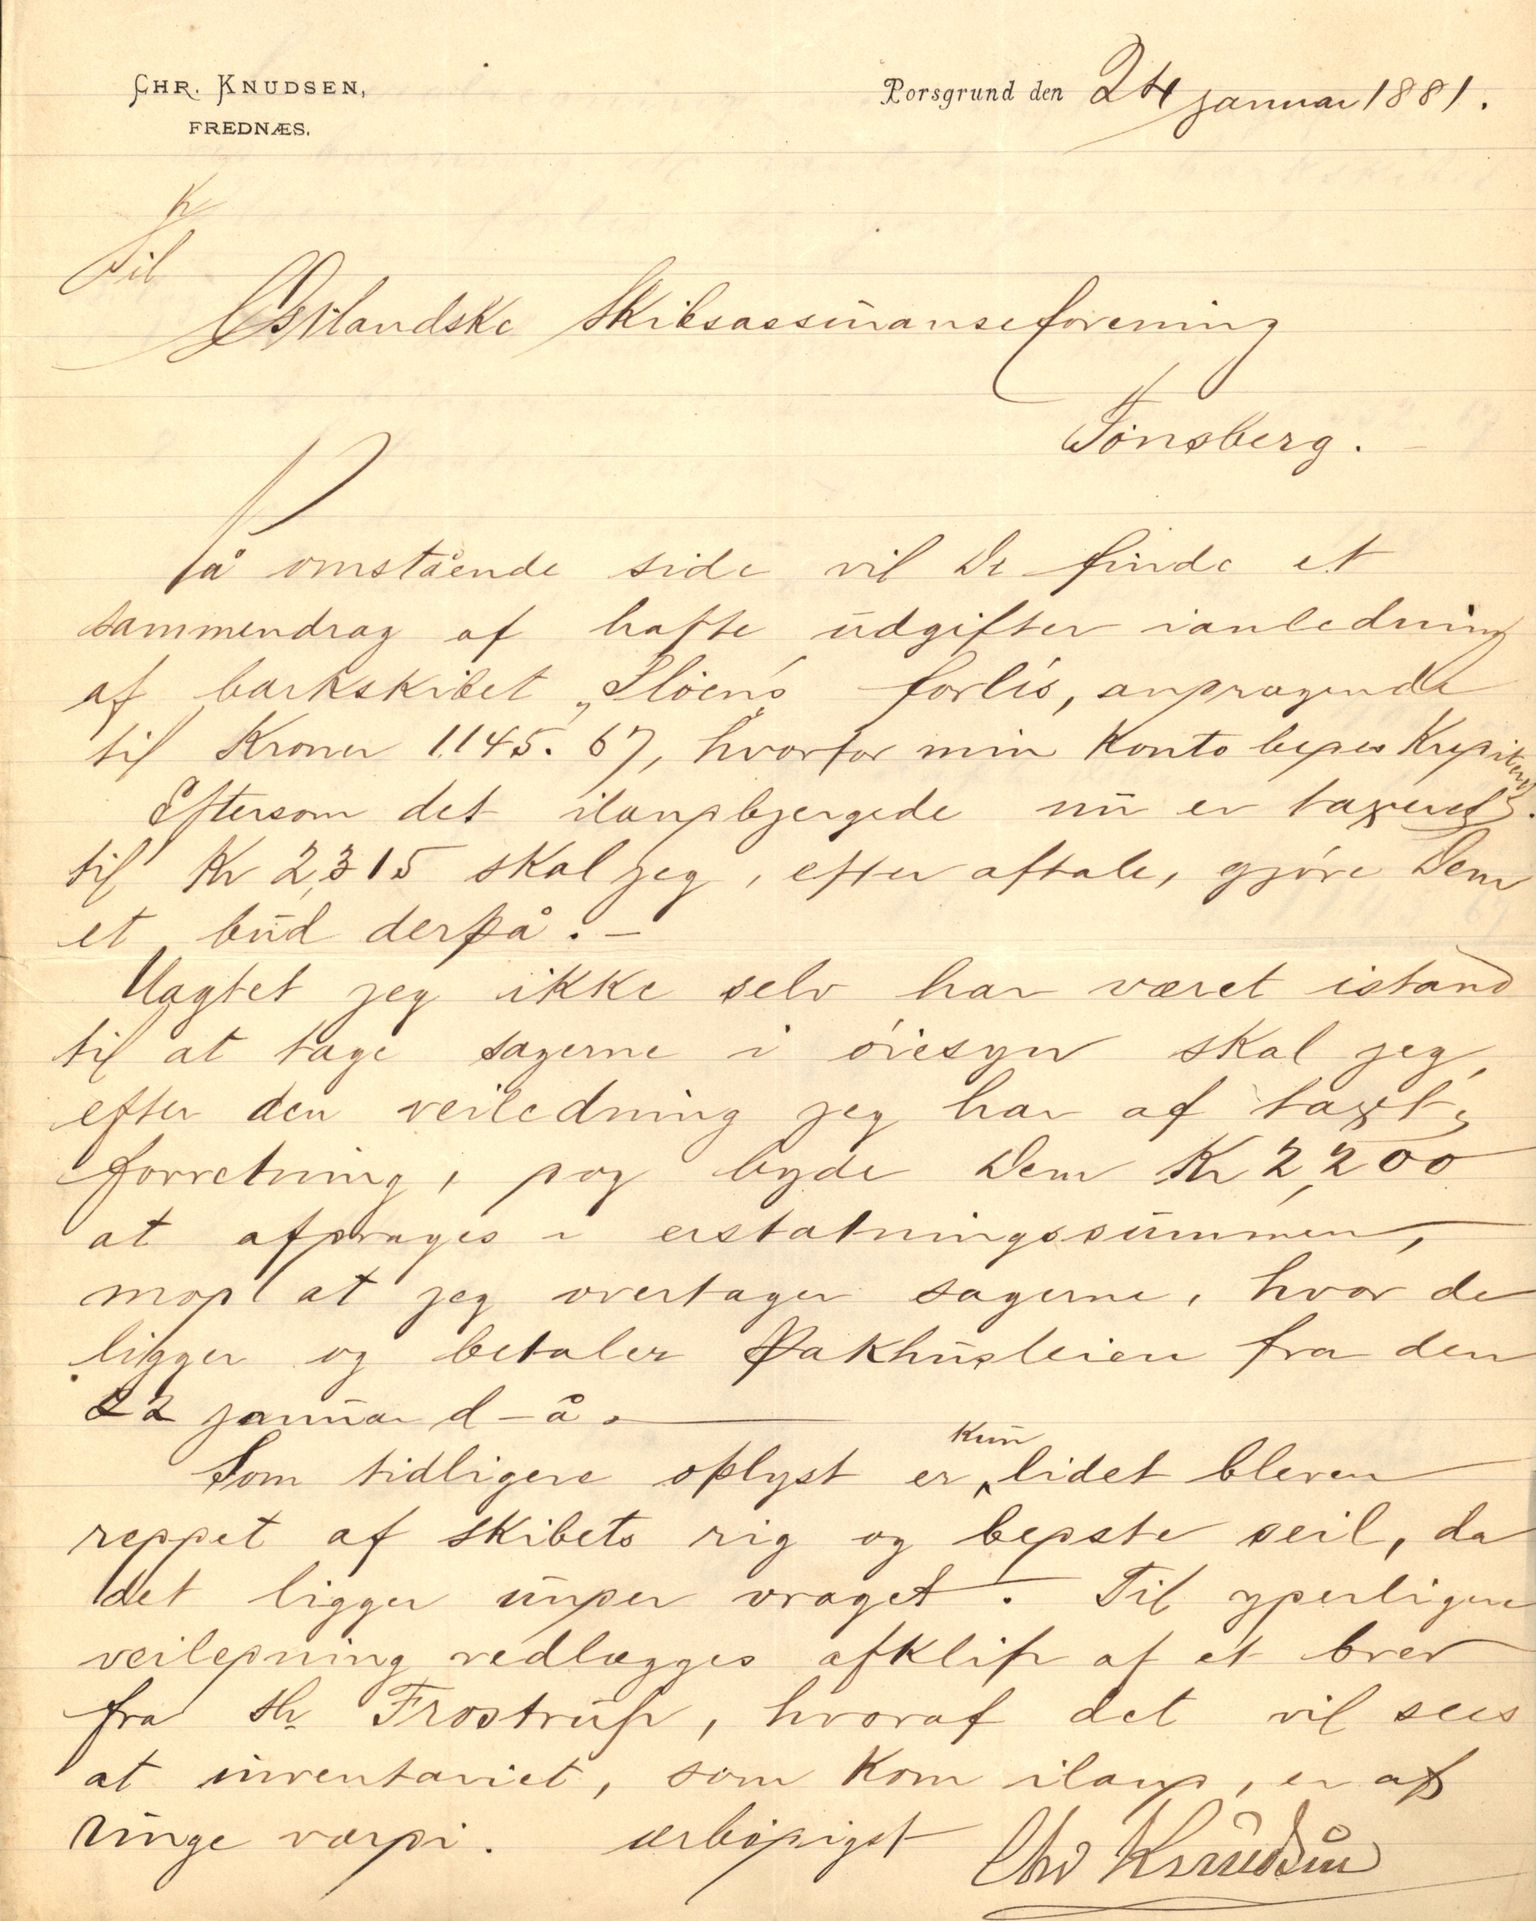 CHR. KNUDSEN,
FREDNÆS.
Porsgrund den 24 januar 1881.
Til
Østlandske Skibsassuranseforening
Tønsberg.
På omstående side vil De finde et
sammendrag af hafte udgifter ianledning
af barkskibet „Sloën's forlis, andragende
til Kroner 1145.67, hvorfor min Konto bedes Krediteres.
Eftersom det ilandbjergede nu er taxeret
til Kr 2,315 skal jeg, efter aftale, gjöre Dem
et bud derpå. —
Uagtet jeg ikke selv har været istand
til at tage sagerne i öiesyn skal jeg,
efter den veiledning jeg har af taxt-
forretning, dog byde Dem Kr 2,200
at afdrages i erstatningssummen,
mod at jeg overtager sagerne, hvor de
ligger og betaler Pakhusleien fra den
22 januar d-å.
Som tidligere oplyst er kun lidet bleven
reddet af skibets rig og bedste seil, da
det ligger under vraget. Til yderligere
veiledning vedlægges afklip af et brev
fra Hr Frostrup, hvoraf det vil sees
at inventariet, som kom iland, er af
ringe værdi. ærbödigst Chr Knudsen